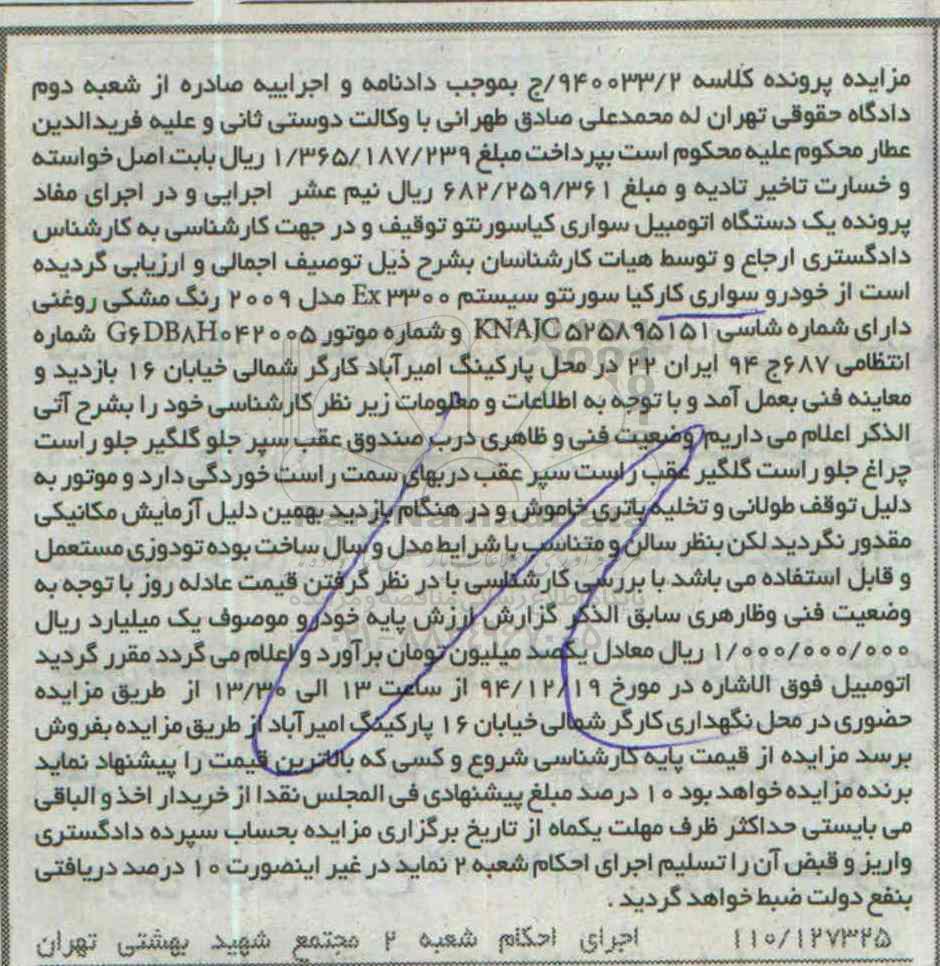 مزایده پرونده کلاسه ۹۴۰۰۳۳/۲/ج بموجب دادنامه و اجراییه صادره از شعبه دوم
دادگاه حقوقی تهران له محمدعلی صادق طهرانی با وکالت دوستی ثانی و علیه فریدالدین
عطار محکوم علیه محکوم است بپرداخت مبلغ ۱/۳۶۵/۱۸۷/۲۳۹ ریال بابت اصل خواسته
و خسارت تاخیر تادیه و مبلغ ۶۸۲/۲۵۹/۳۶۱ ریال نیم عشر اجرایی و در اجرای مفاد
پرونده یک دستگاه اتومبیل سواری کیاسورنتو توقیف و در جهت کارشناسی به کارشناس
دادگستری ارجاع و توسط هیات کارشناسان بشرح ذیل توصیف اجمالی و ارزیابی گردیده
است از خودرو سواری کارکیا سورنتو سیستم Ex ۳۳۰۰ مدل ۲۰۰۹ رنگ مشکی روغنی
دارای شماره شاسی KNAJC ۵۲۵۸۹۵۱۵۱ و شماره موتور G۶DB۸H۰۴۲۰۰۵ شماره
انتظامی ۶۸۷ج ۹۴ ایران ۲۲ در محل پارکینگ امیرآباد کارگر شمالی خیابان ۱۶ بازدید و
معاینه فنی بعمل آمد و با توجه به اطلاعات و معلومات زیر نظر کارشناسی خود را بشرح آتی
الذکر اعلام می داریم وضعیت فنی و ظاهری درب صندوق عقب سپر جلو گلگیر جلو راست
چراغ جلو راست گلگیر عقب راست سپر عقب دربهای سمت راست خوردگی دارد و موتور به
دلیل توقف طولانی و تخلیه باتری خاموش و در هنگام بازدید بهمین دلیل آزمایش مکانیکی
مقدور نگردید لکن بنظر سالن و متناسب با شرایط مدل و سال ساخت بوده تودوزی مستعمل
و قابل استفاده می باشد با بررسی کارشناسی با در نظر گرفتن قیمت عادله روز با توجه به
وضعیت فنی وظارهری سابق الذکر گزارش ارزش پایه خودرو موصوف یک میلیارد ریال
۱/۰۰۰/۰۰۰/۰۰۰ ریال معادل یکصد میلیون تومان برآورد و اعلام می گردد مقرر گردید
اتومبیل فوق الاشاره در مورخ ۹۴/۱۲/۱۹ از ساعت ۱۳ الی ۱۳/۳۰ از طریق مزایده
حضوری در محل نگهداری کارگر شمالی خیابان ۱۶ پارکینگ امیرآباد از طریق مزایده بفروش
برسد مزایده از قیمت پایه کارشناسی شروع و کسی که بالاترین قیمت را پیشنهاد نماید
برنده مزایده خواهد بود ۱۰ درصد مبلغ پیشنهادی فی المجلس نقدا از خریدار اخذ و الباقی
می بایستی حداکثر ظرف مهلت یکماه از تاریخ برگزاری مزایده بحساب سپرده دادگستری
واریز و قبض آن را تسلیم اجرای احکام شعبه ۲ نماید در غیر اینصورت ۱۰ درصد دریافتی
بنفع دولت ضبط خواهد گردید .
۱۱۰/۱۲۷۳۲۵ اجرای احکام شعبه ۲ مجتمع شهید بهشتی تهران